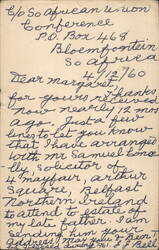 C/o So African Union
Conference
P.O. Box 468
Bloemfontein
So Africa
4/12/60
Dear Margaret,
for yours thanks
received
now nearly 12 mon
ago. Just a few
lines to let you know
that I have arranged
with Mr. Samuel
solicitor of
4 Mayfair, Arthur
Square, Belfast
Northern Ireland
to attend to estate of
my late father. I am
sending him your
address. May you &